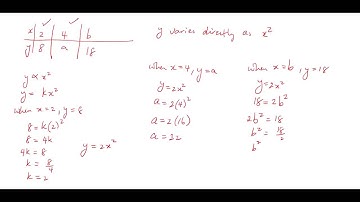 x | 2 | 4 | b
y | 8 | a | 18
y varies directly as x²
y ∝ x²
y = kx²
when x=2, y=8
8 = k(2)²
8 = 4k
4k = 8
k = 8/4
k = 2
y = 2x²
when x=4, y=a
y=2x²
a = 2(4)²
a = 2(16)
a = 32
when x=b, y=18
y=2x²
18 = 2b²
2b² = 18
b² = 18/2
b²